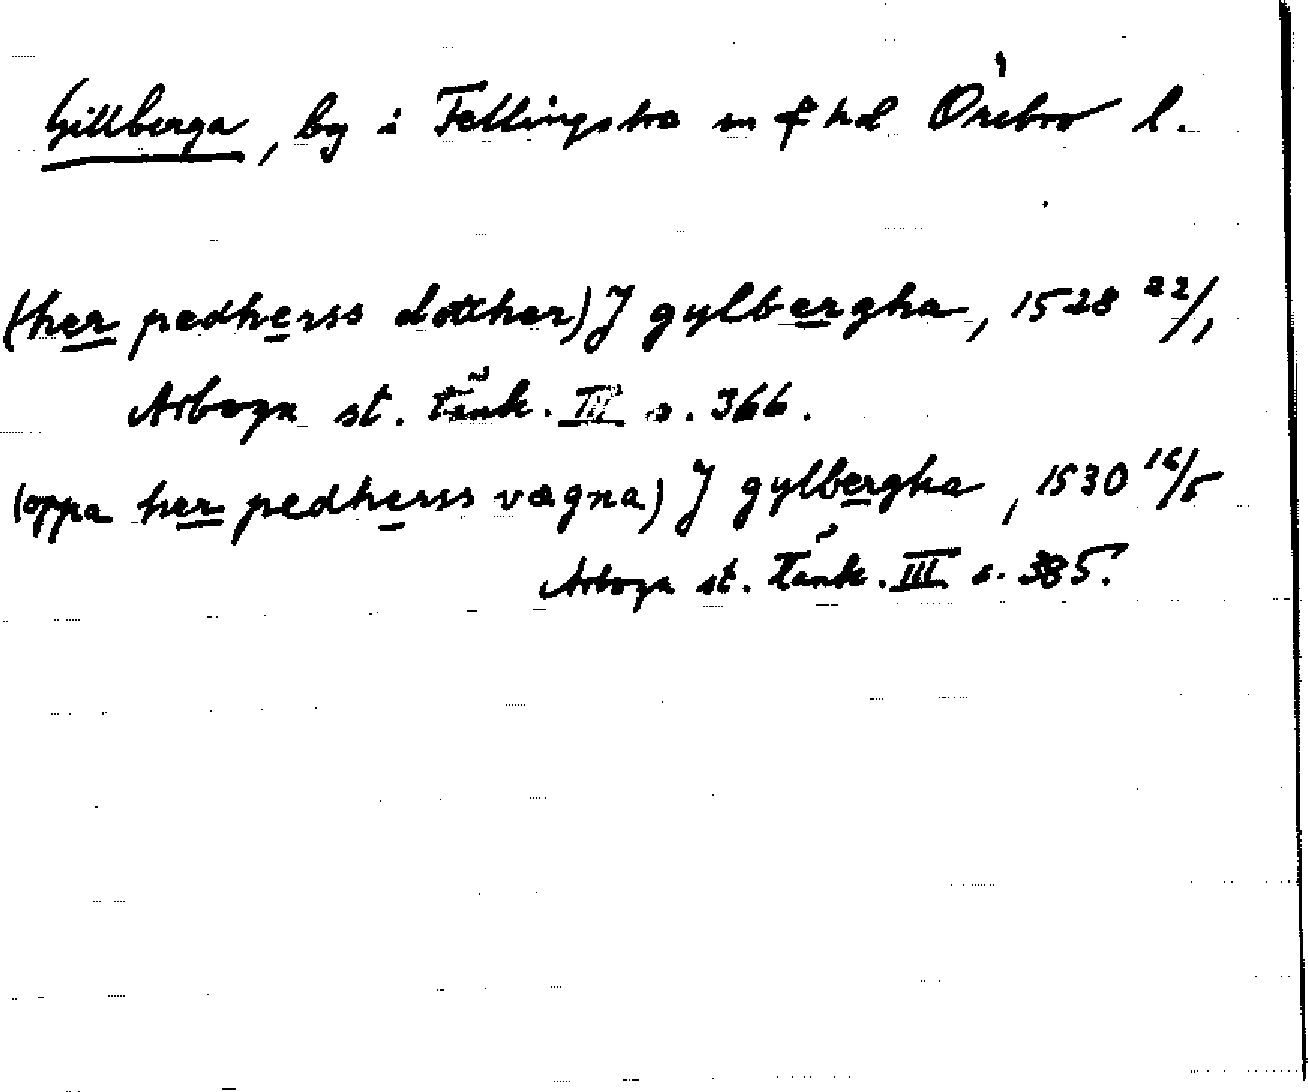 Gillberga, by i Fellingsbro sn o hd Örebro l.
(her pedherss dotther) J gylbergha, 1528 22/1
Arboga st. tänk. III s. 366.
(oppa her pedherss vægna) J gylbergha, 1530 16/5
Arboga st. tänk. III s. 385.